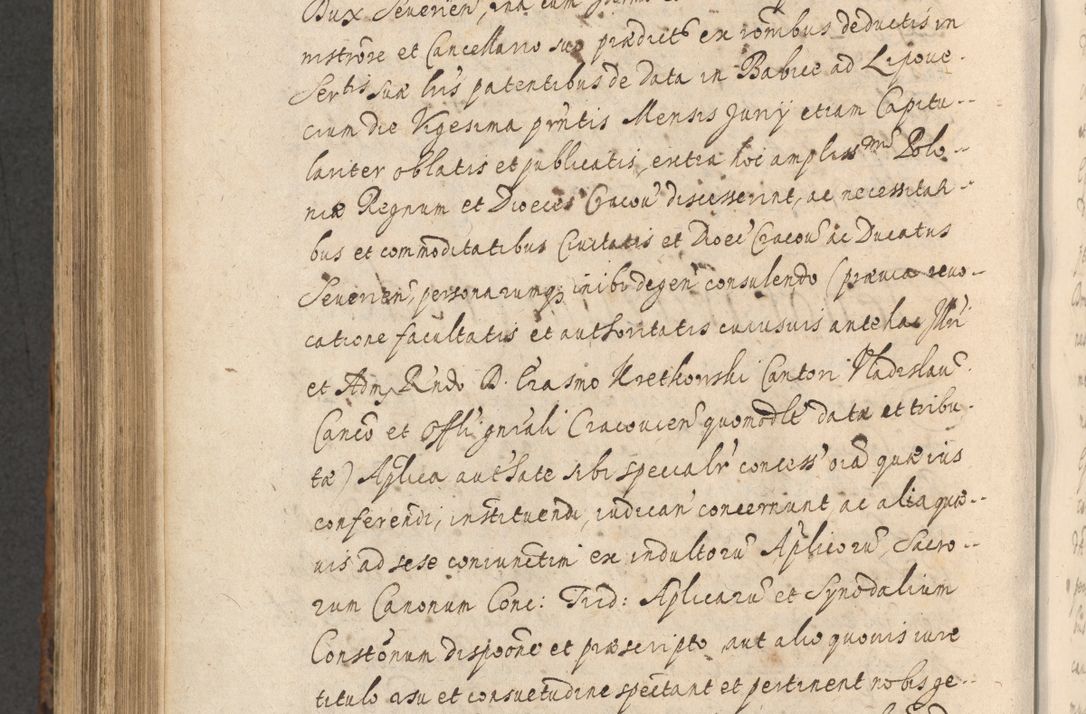 Dux Severien, una cum
nistrõre et Cancellario suo prædicts ex rõnibus deductis in
Sertis suæ lris patentibus de data in Babice ad Lipove-
cium die Vigesima prntis Mensis Junij etiam Capitu-
lariter oblatis et publicatis, extra hoc ampliss mũ Polo-
niæ Regnum et Dioeces Cracov discesserint, ac necessitati-
bus et commoditatibus Civitatis et Dioec Cracov ac Ducatus
Severien, personarumq; inibi degen consulendo (prævia revo-
catione facultatis et authoritatis cuiusvis antehac Illri
et Adm Rndo D. Erasmo Kretkowski Cantori Vladislav.
Canco et Offli gnrali Cracovien quomodlt data et tribu-
tæ) Aplica authate sibi specialr concess oia quæ ius
conferendi, instituendi, iudican concernunt, ac alia quæ-
vis ad sese coniunctim ex indultorũ Aplicorũ, Sacro-
rum Canonum Conc: Trid: Aplicarũ et Synodalium
Constõnum dispõone et præscripto, aut alio quovis iure
titulo usu et consuetudine spectant et pertinent nobis ge-